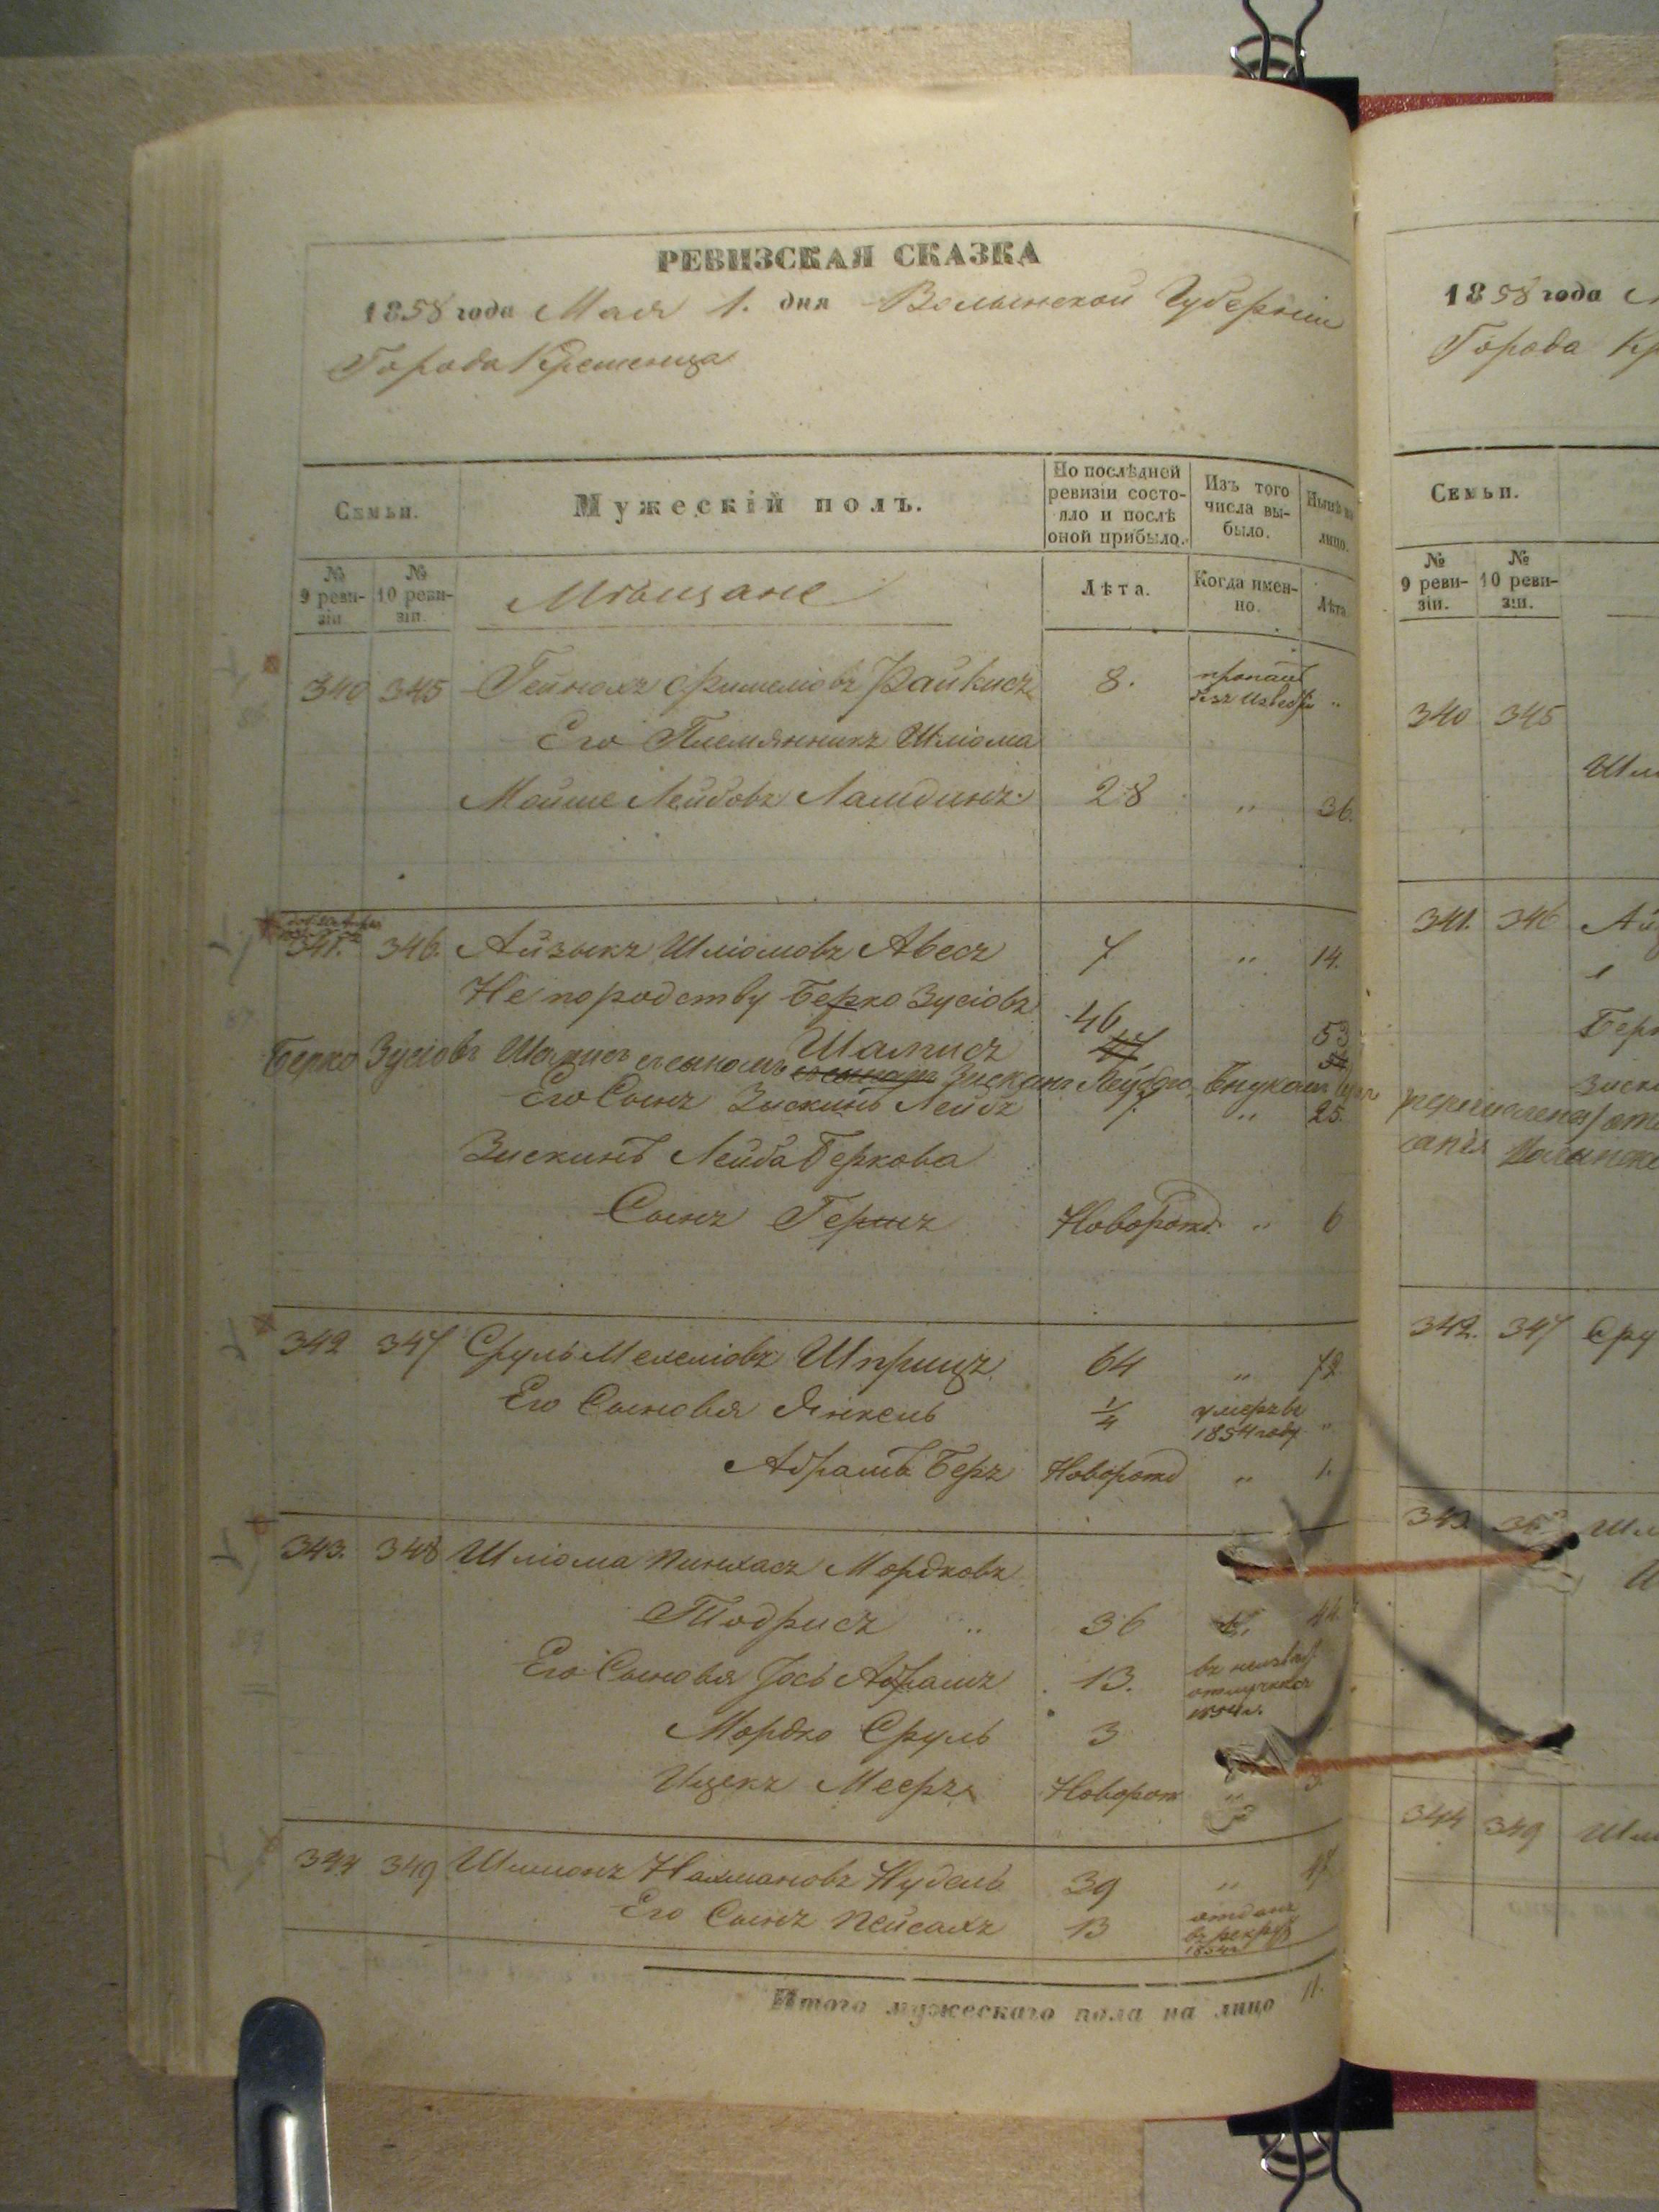 РЕВИЗСКАЯ СКАЗКА
1858 года Мая 1. дня Волынской Губерніи
Города Кременца
Семьи.
Мужескій полъ.
По послѣдней ревизіи состо-
яло и послѣ
оной прибыло.
Изъ того
числа вы-
было.
Нынѣ на
лицо.
№
9 реви-
зіи.
№
10 реви-
зіи.
Мѣщане
Лѣта.
Когда имен-
но.
Лѣта
340 345 Гейнохъ Фишеліовъ Райкисъ 8. пропалъ
безъ "
Его Племянникъ Шліома
Мойше Лейбовъ Ламдинъ 28 " 36.
341. 346. Айзыкъ Шліомовъ Авесъ 7 " 14.
Не породству Берко Зусіовъ
Шамисъ 46 53
Берко Зусіовъ Шамисъ съ сыномъ Зискинъ Лейбою, внукомъ
Его Сынъ Зискинъ Лейба " 25.
Зискинъ Лейба Беркова
Сынъ Гершъ Новорожд. " 6
342 347 Сруль Мехеліовъ Шприцъ 64 " 72
Его Сыновья Янкель 1/4 умеръ въ
1854 году "
Абрамъ Беръ Новорожд " 1.
343. 348 Шліома Пинхасъ Мордковъ
Тодрисъ " 36 44.
Его Сыновья Іось Абрамъ 13. въ неизвѣс.
отлучкѣ съ
1854 г.
Мордко Сруль 3
Ицекъ Мееръ Новорож "
344 349 Шимонъ Нахмановъ Нудель 39 " 47
Его Сынъ Пейсахъ 13 отданъ
въ рекру
1854 г
Итого мужескаго пола на лицо 11.
1858 года
Города Кр
Семьи.
№
9 реви-
зіи.
№
10 реви-
зіи.
340 345
Шлі
341. 346 Ай
Берк
Зиск
342. 347 Сру
343.
344 349 Ши